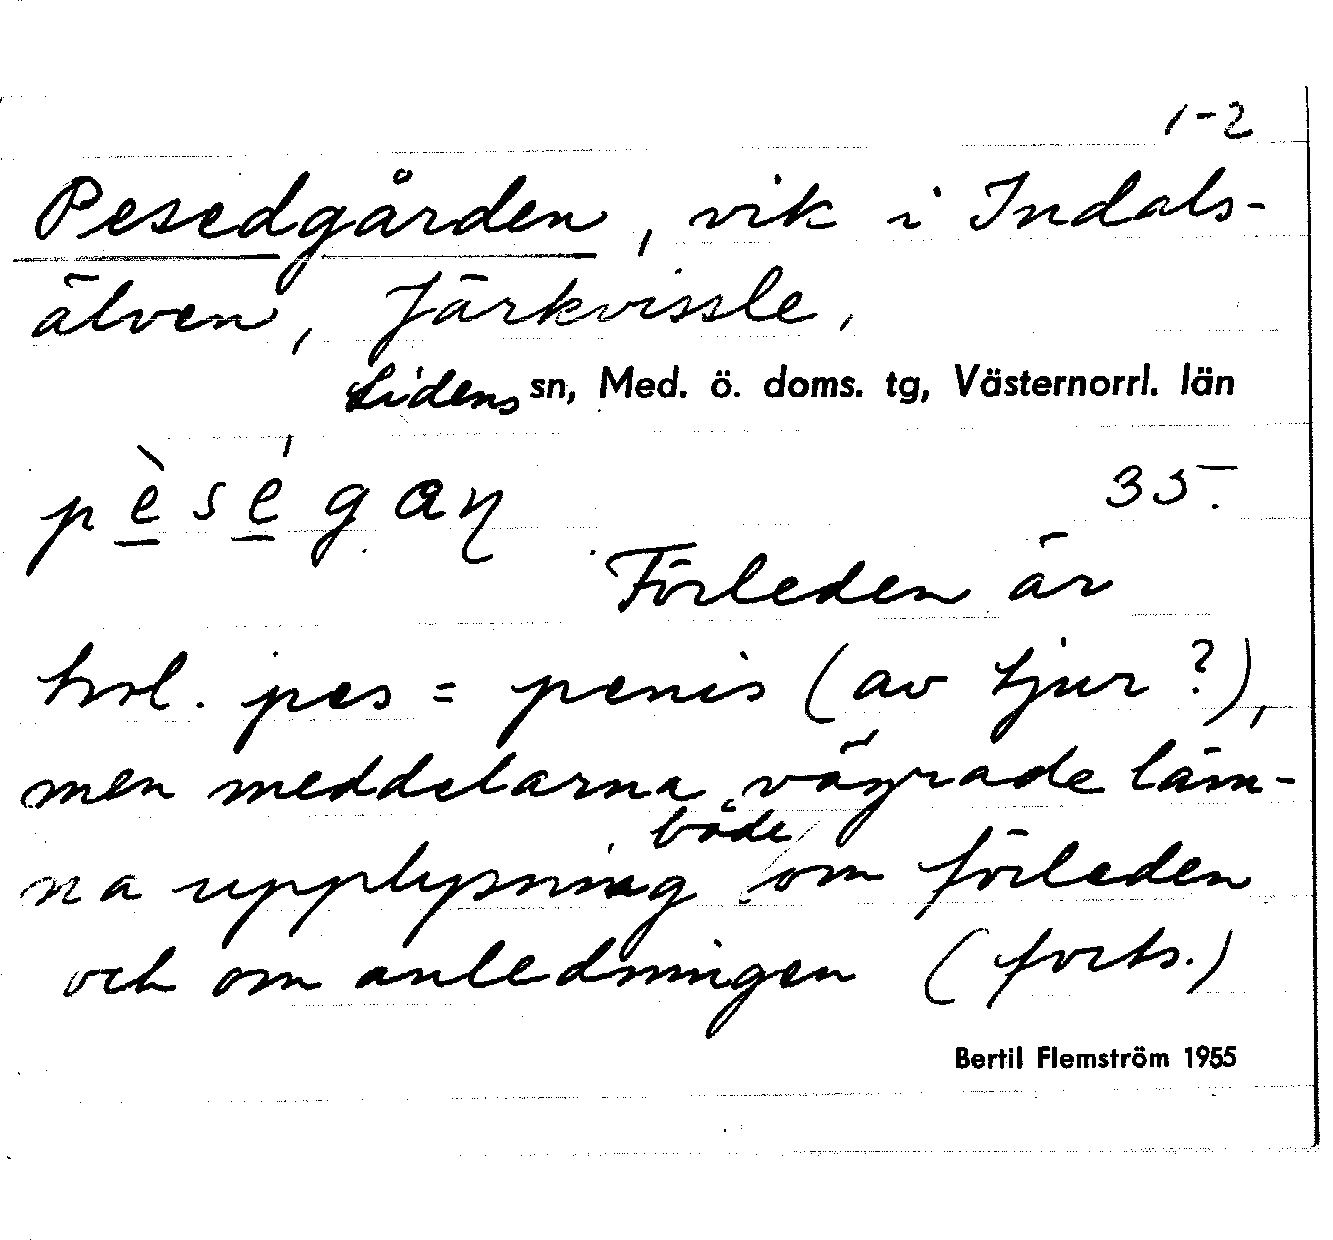 1-2
Pesedgården, vik i Indals-
älven, Järkvissle,
Lidens sn, Med. ö. doms. tg, Västernorrl. län
pè̠sé̠gaɳ 35.
Förleden är
trol. pes = penis (av tjur?),
men meddelarna vägrade läm-
na upplysning både om förleden
och om anledningen (forts.)
Bertil Flemström 1955